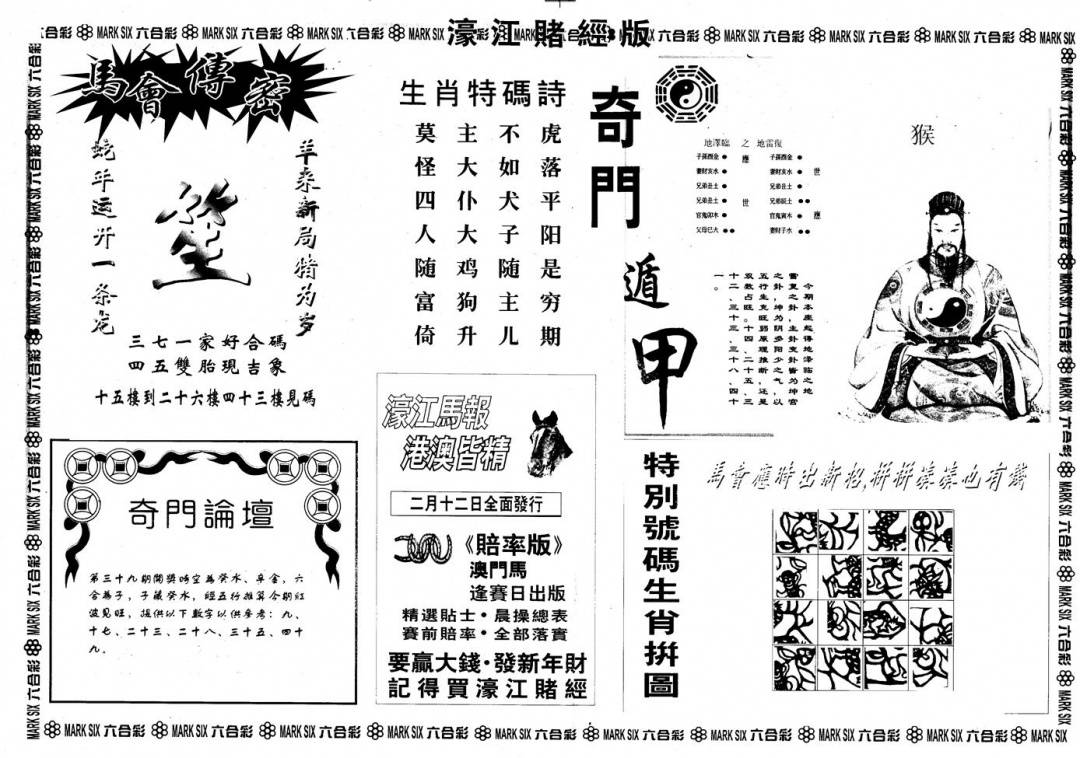 濠江賭經版
MARK SIX 六合彩
馬會傳密
羊来新局猪为岁
蛇年运开一条龙
三七一家好合碼
四五雙胎現吉象
十五樓到二十六樓四十三樓見碼
生肖特碼詩
虎落平阳是穷期
不如犬子随主儿
主大仆大鸡狗升
莫怪四人随富倚
奇門遁甲
地澤臨 之 地雷復
子孫酉金 應 子孫酉金
妻財亥水 妻財亥水 世
兄弟丑土 兄弟丑土
兄弟丑土 世 兄弟辰土
官鬼卯木 官鬼寅木 應
父母巳火 妻財子水
猴
今期本座起得地泽临之地
雷复之卦，主卦变卦皆为坤宫
之卦，坤为阴，多阳少之气，以
五行生旺。弱原理推断，还是
双数占克旺十四、二十五、三十
十二、三十、三十三、十八、四十
一。
奇門論壇
第三十九期開獎時空為癸水、辛金，六
合為子，子藏癸水，經五行推算今期紅
波見旺，提供以下數字以供參考：九、
十七、二十三、二十八、三十五、四十
九．
濠江馬報
港澳皆精
二月十二日全面發行
《賠率版》
澳門馬
逢賽日出版
精選貼士·晨操總表
賽前賠率·全部落實
要贏大錢·發新年財
記得買濠江賭經
特別號碼生肖拼圖
馬會應時出新招，拼拼湊湊也有錢